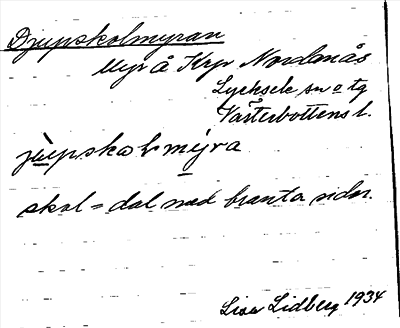 Djupskolmyran
Myr å Krp Nordanås
Lycksele sn o tg
Västerbottens l.
jupskolmyra
skol = dal med branta sidor.
Lisa Lidberg 1934